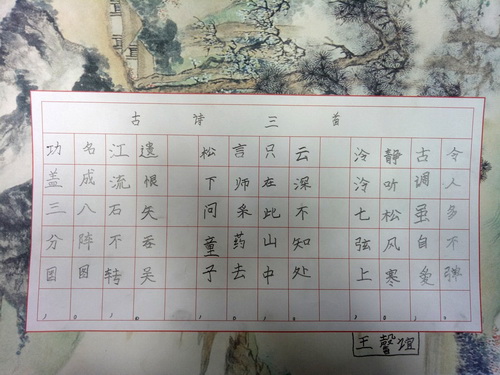 古诗三首
功盖三分国，
名成八阵图。
江流石不转，
遗恨矢吞吴。
松下问童子，
言师采药去。
只在此山中，
云深不知处。
泠泠七弦上，
静听松风寒。
古调虽自爱，
令人多不弹。
王馨谊